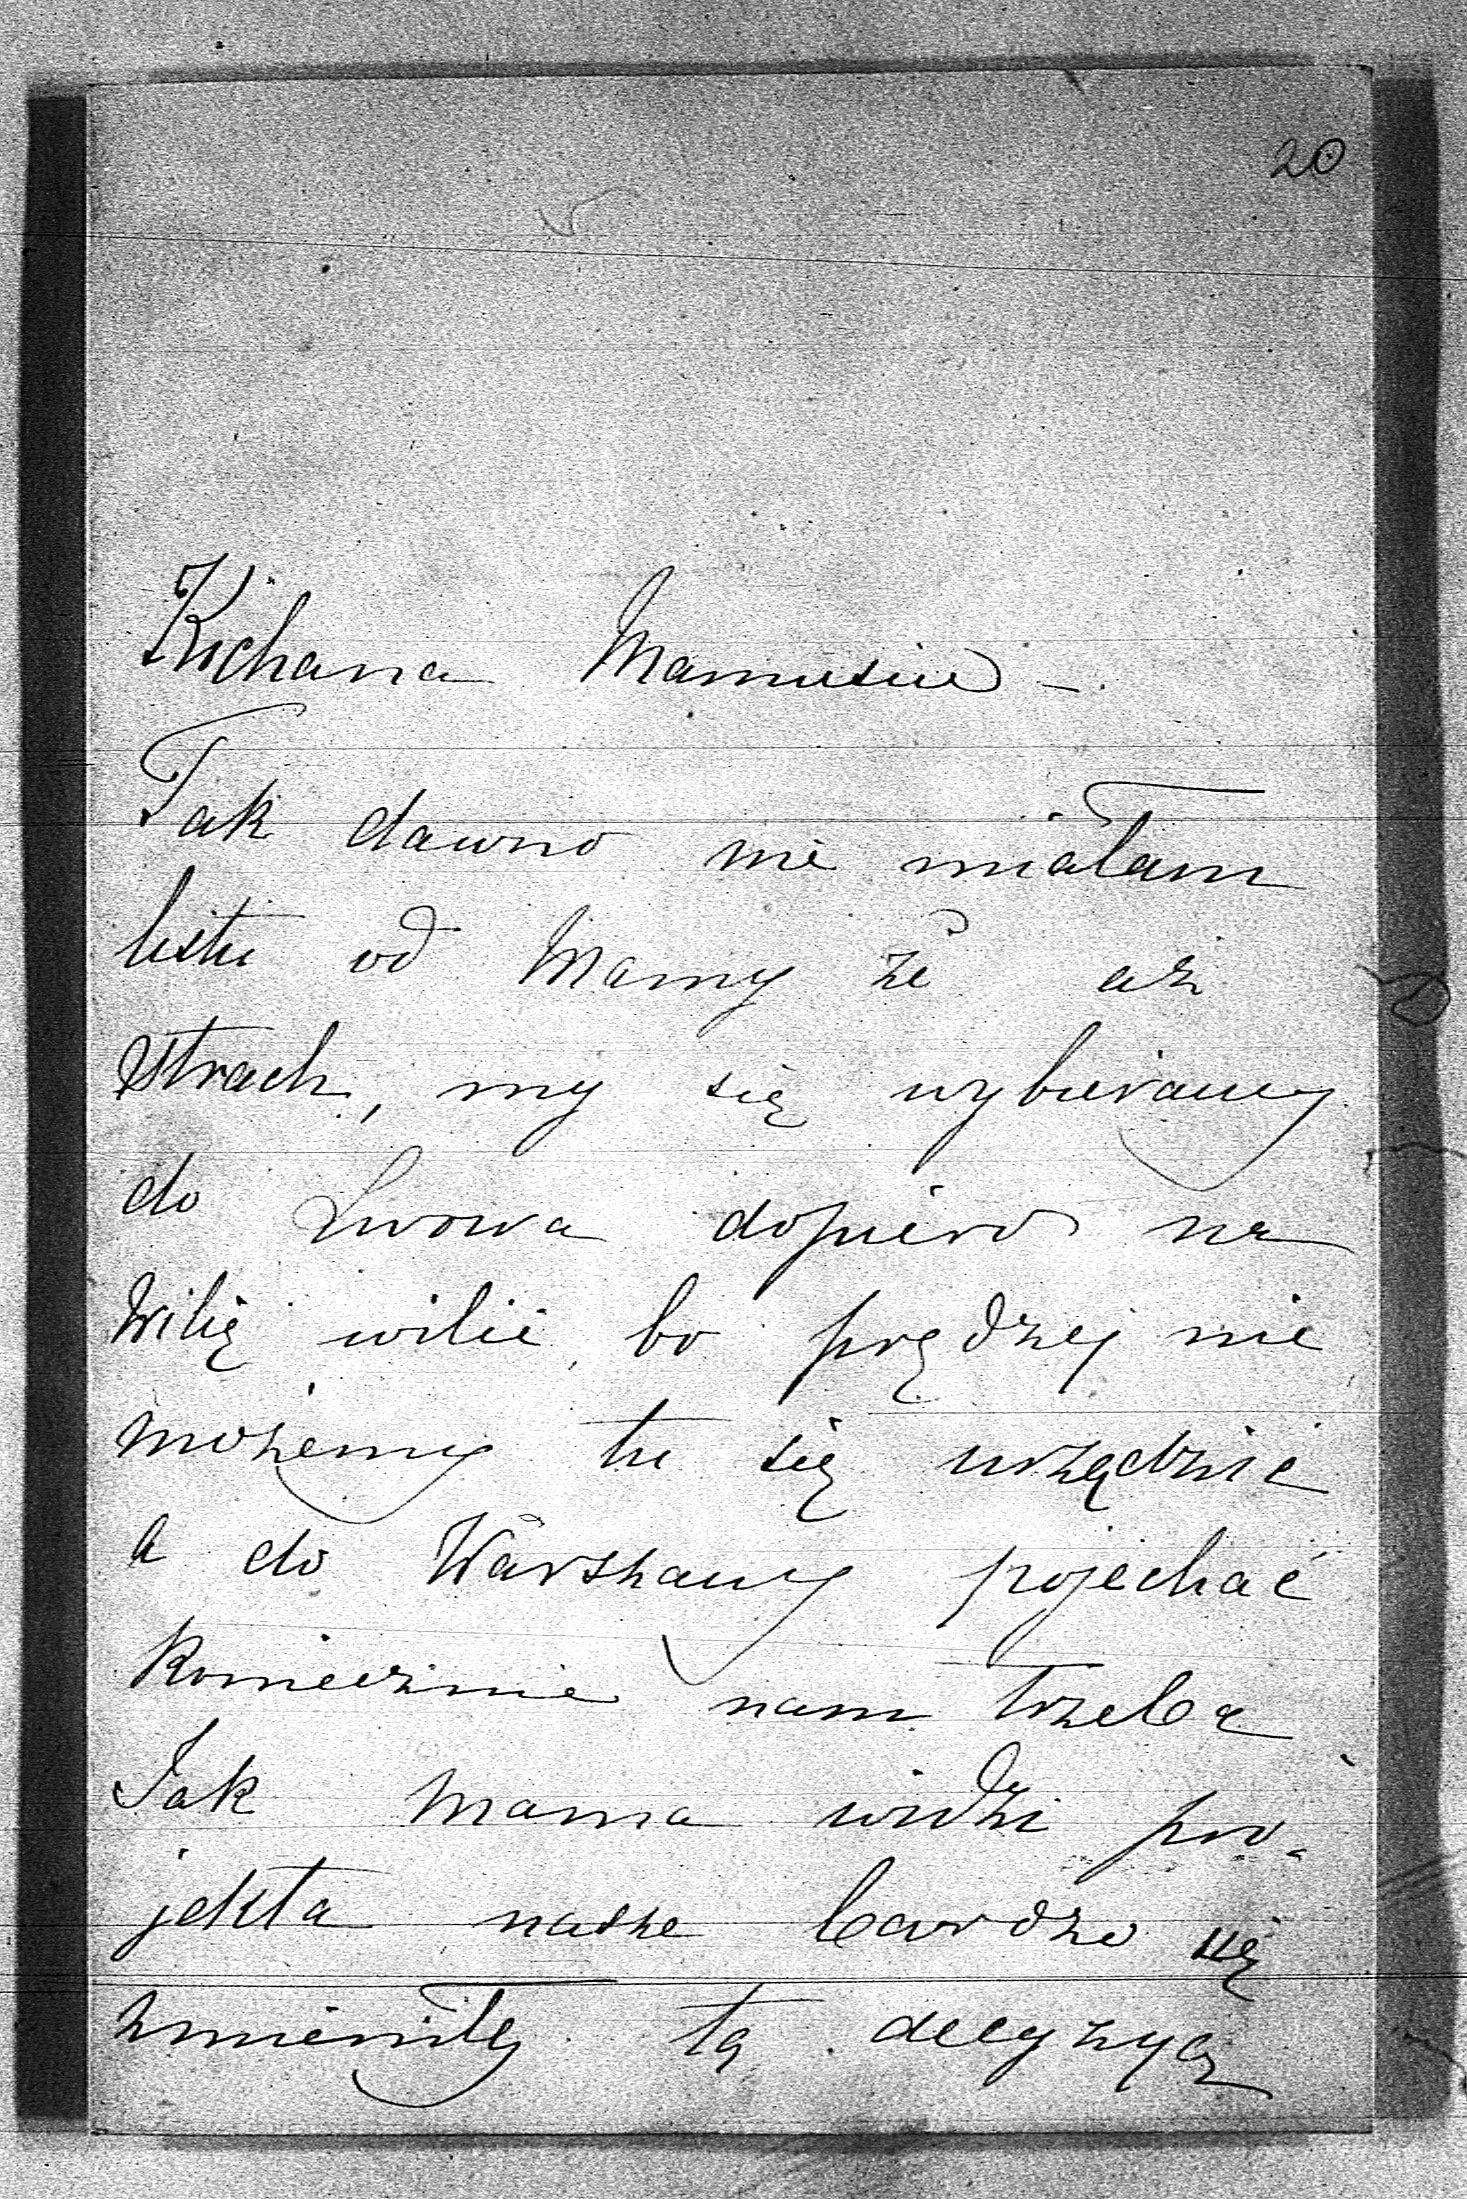 20
Kichana Mamusiu -
Tak dawno nie miałam
listu od Mamy że aż
strach, my się wybieramy
do Lwowa dopiero na
Wilię wilii, bo prędzej nie
możemy tu się urządzić
a do Warszawy pojechać
koniecznie nam trzeba
Jak Mama widzi pro-
jekta nasze bardzo się
zmieniły tą decyzyą